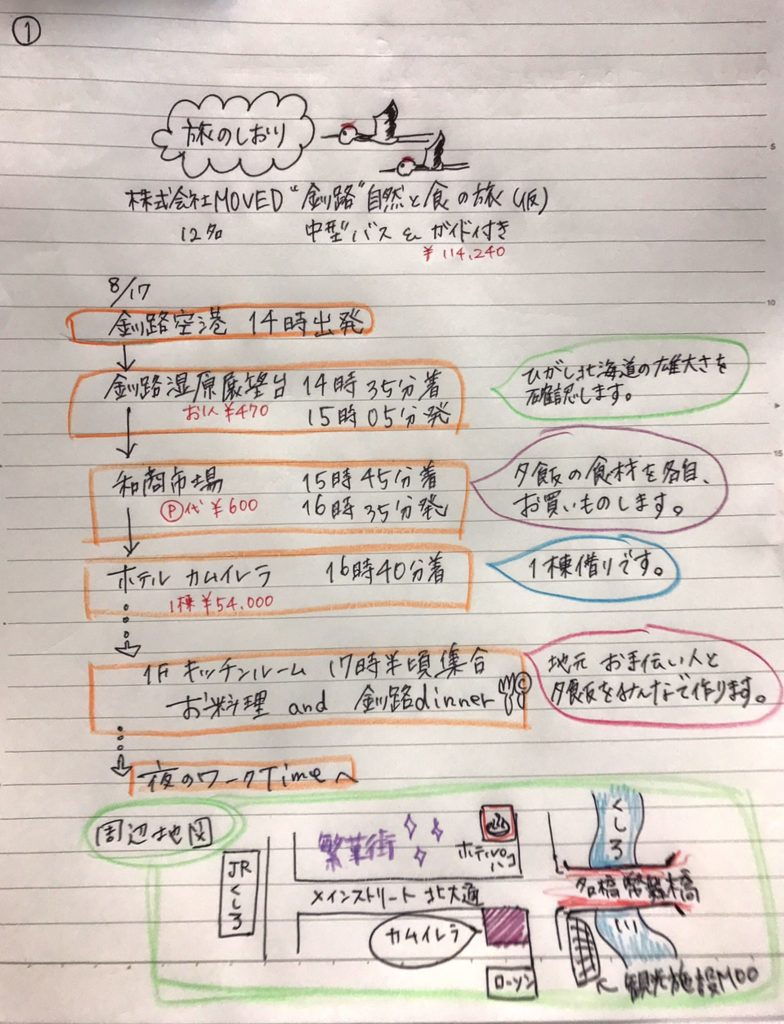 ①
旅のしおり
株式会社MOVED "釧路"自然と食の旅(仮)
12名 中型バス & ガイド付き
¥114,240
8/17
釧路空港 14時出発
釧路湿原展望台 14時35分着
お1人 ¥470 15時05分発
ひがし北海道の雄大さを
確認します。
和商市場 15時45分着
Ⓟ代 ¥600 16時35分発
夕飯の食材を各自、
お買いものします。
ホテル カムイレラ 16時40分着
1棟 ¥54,000
1棟借りです。
1F キッチンルーム 17時半頃集合
お料理 and 釧路dinner
地元 お手伝い人と
夕飯をみんなで作ります。
夜のワークTimeへ
周辺地図
JRくしろ
繁華街
ホテルパコ
メインストリート 北大通
カムイレラ
ローソン
くしろ
名橋 幣舞橋
川
観光施設MOO